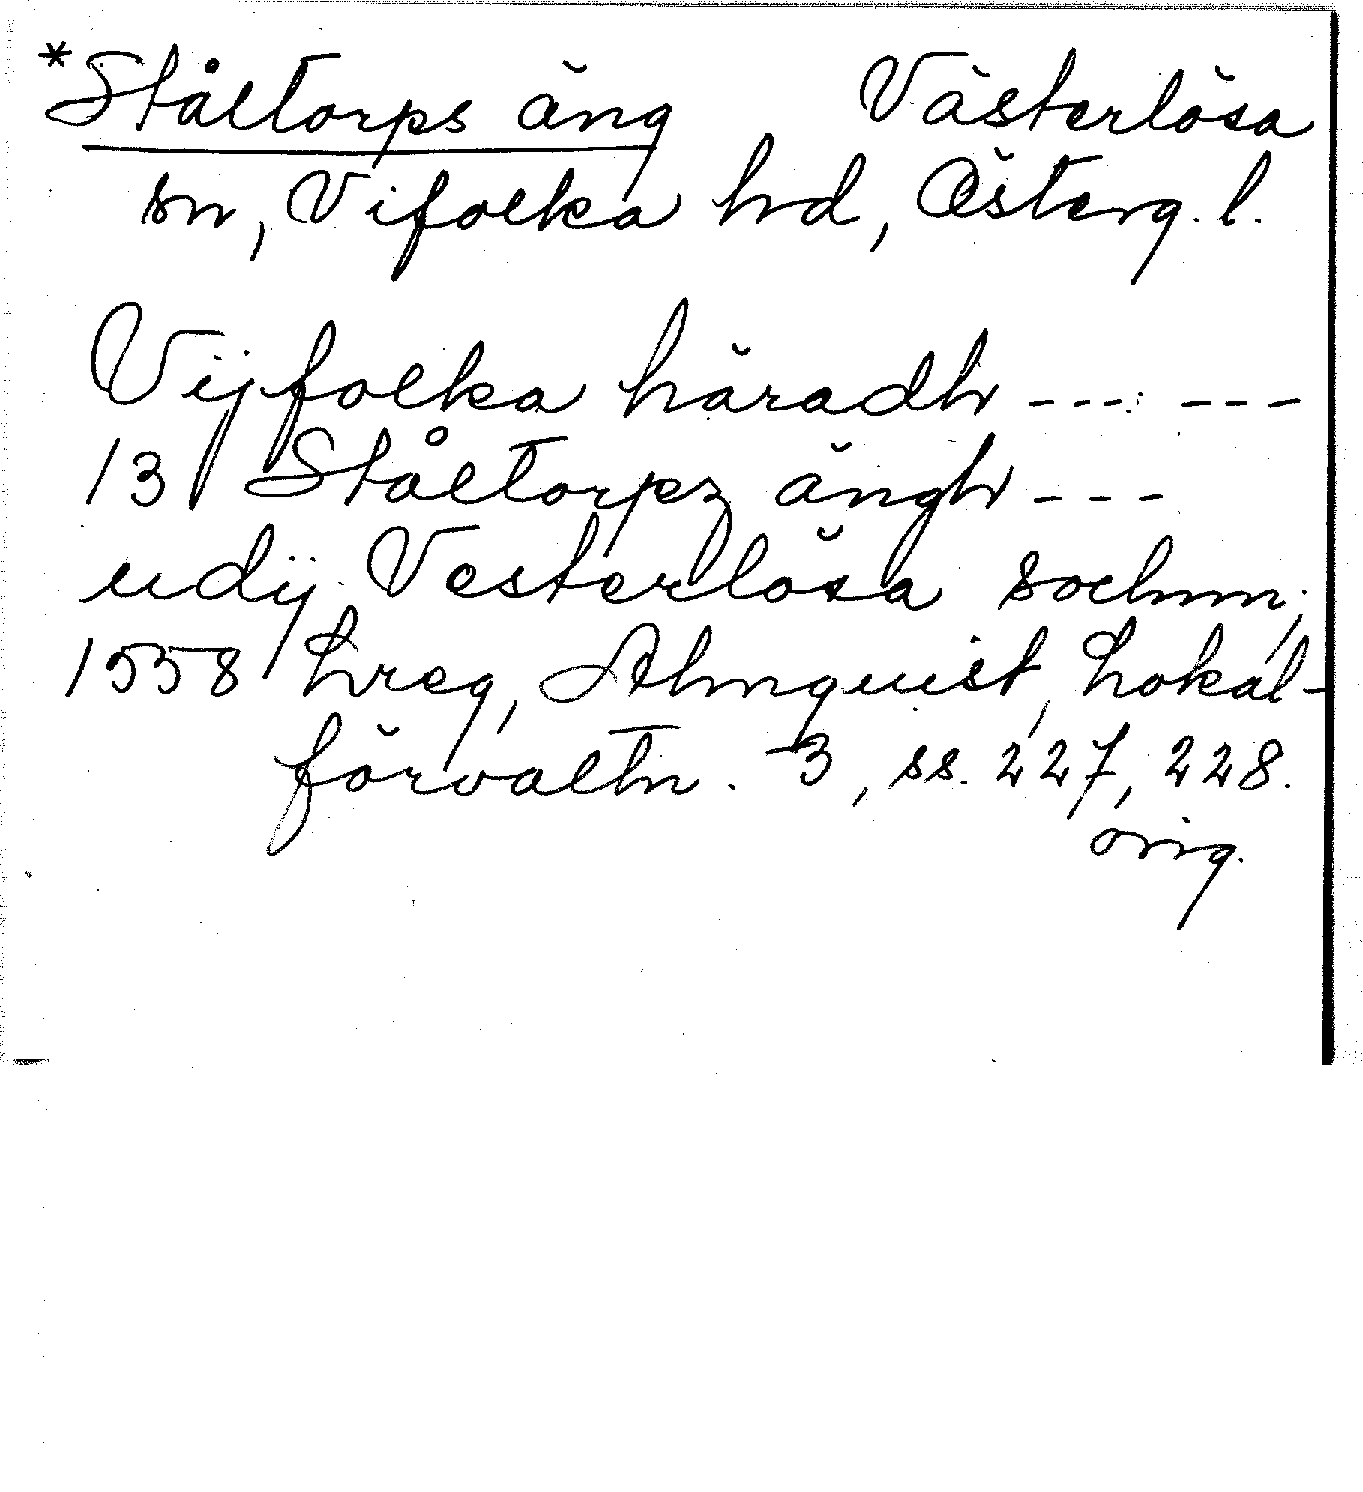 *Ståltorps äng Västerlösa
sn, Vifolka hd, Österg. l.
Vijfolka häradh --- ---
13 Ståltorpz ängh ---
udij Vesterlösa sochnn;
1558 Lreg, Almquist, Lokal-
förvaltn. 3, ss. 227, 228.
orig.